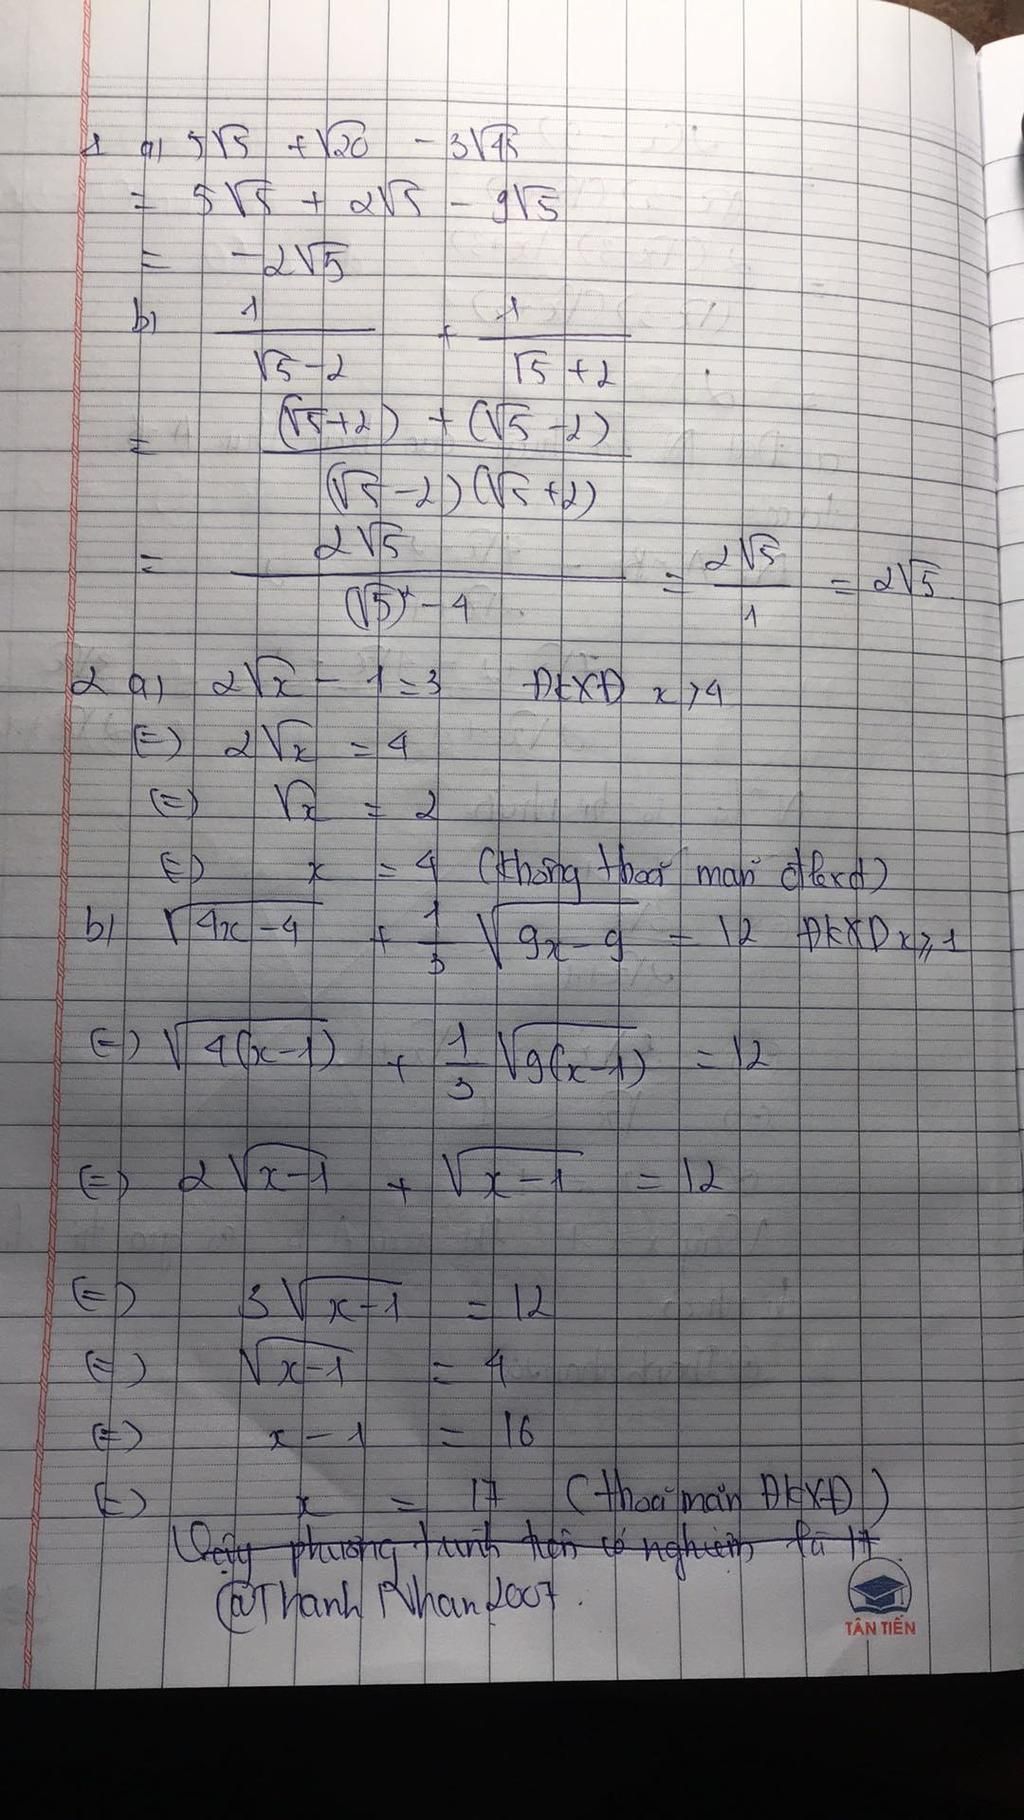 1 a) 5√5 + √20 - 3√45
= 5√5 + 2√5 - 9√5
= -2√5
b) 1/(√5-2) + 1/(√5+2)
= ((√5+2) + (√5-2))/((√5-2)(√5+2))
= 2√5/((√5)² - 4) = 2√5/1 = 2√5
2 a) 2√x - 1 = 3 ĐKXĐ x > 4
(=) 2√x = 4
(=) √x = 2
(=) x = 4 (không thoả mãn đkxđ)
b) √(4x-4) + 1/3 √(9x-9) = 12 ĐKXĐ x ⩾ 1
(=) √(4(x-1)) + 1/3 √(9(x-1)) = 12
(=) 2√(x-1) + √(x-1) = 12
(=) 3√(x-1) = 12
(=) √(x-1) = 4
(=) x - 1 = 16
(=) x = 17 (thoả mãn ĐKXĐ)
Vậy phương trình trên có nghiệm là 17
@Thanh Nhan2007.
TÂN TIẾN